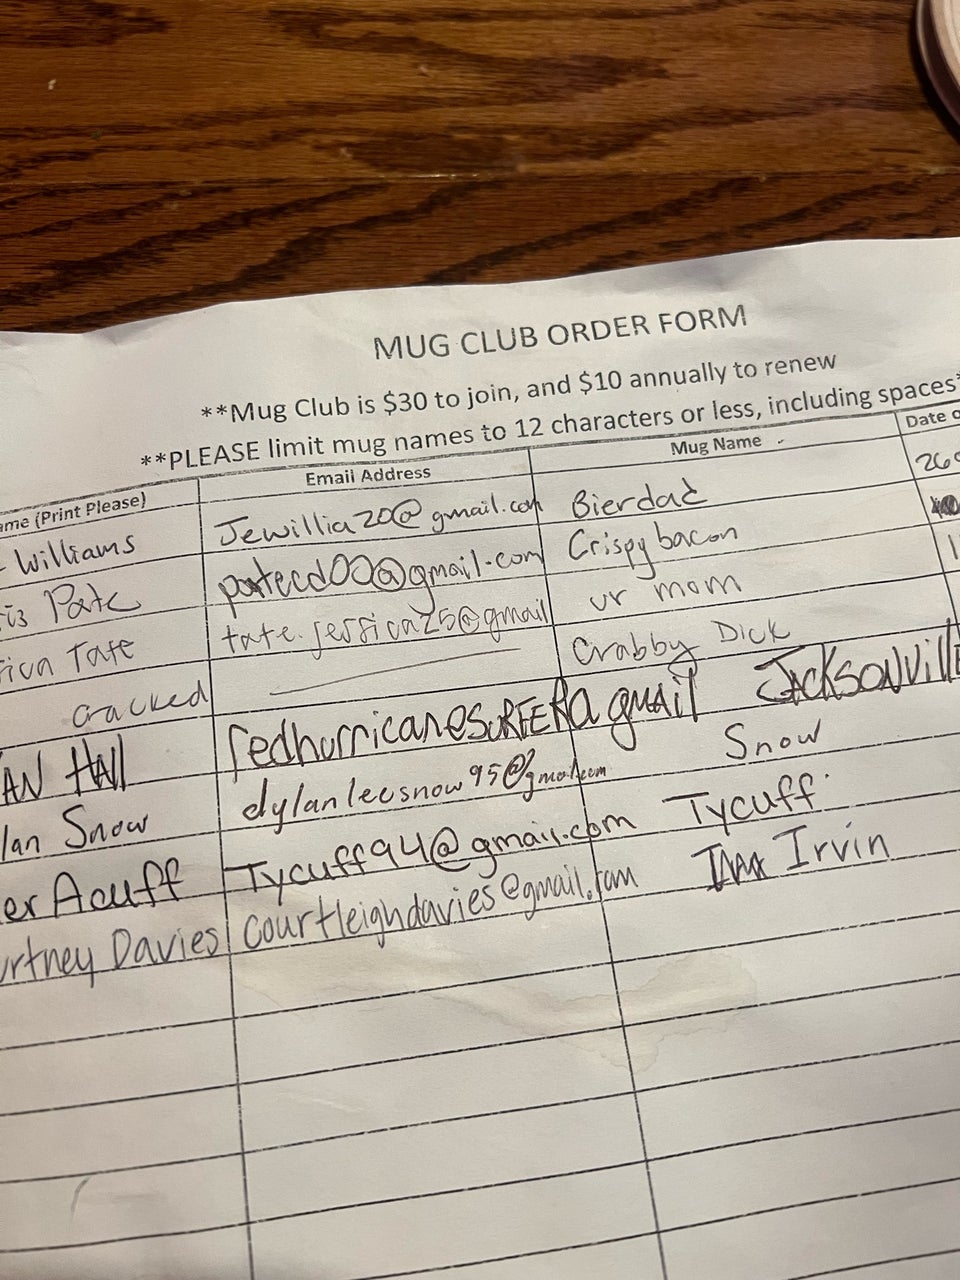 MUG CLUB ORDER FORM
**Mug Club is $30 to join, and $10 annually to renew
**PLEASE limit mug names to 12 characters or less, including spaces*
ame (Print Please) Email Address Mug Name Date o
Williams Jewillia20@gmail.com Bierdad 26
is Pate patecd00@gmail.com Crispy bacon
sica Tate tate.jessica25@gmail ur mom 1
cracked Crabby Dick
AN HAll redhurricaneSURFERA gmail JACKSONVillE
lan Snow dylanleesnow95@gmail.com Snow
er Acuff Tycuff94@gmail.com Tycuff
urtney Davies courtleighdavies@gmail.com Irvin